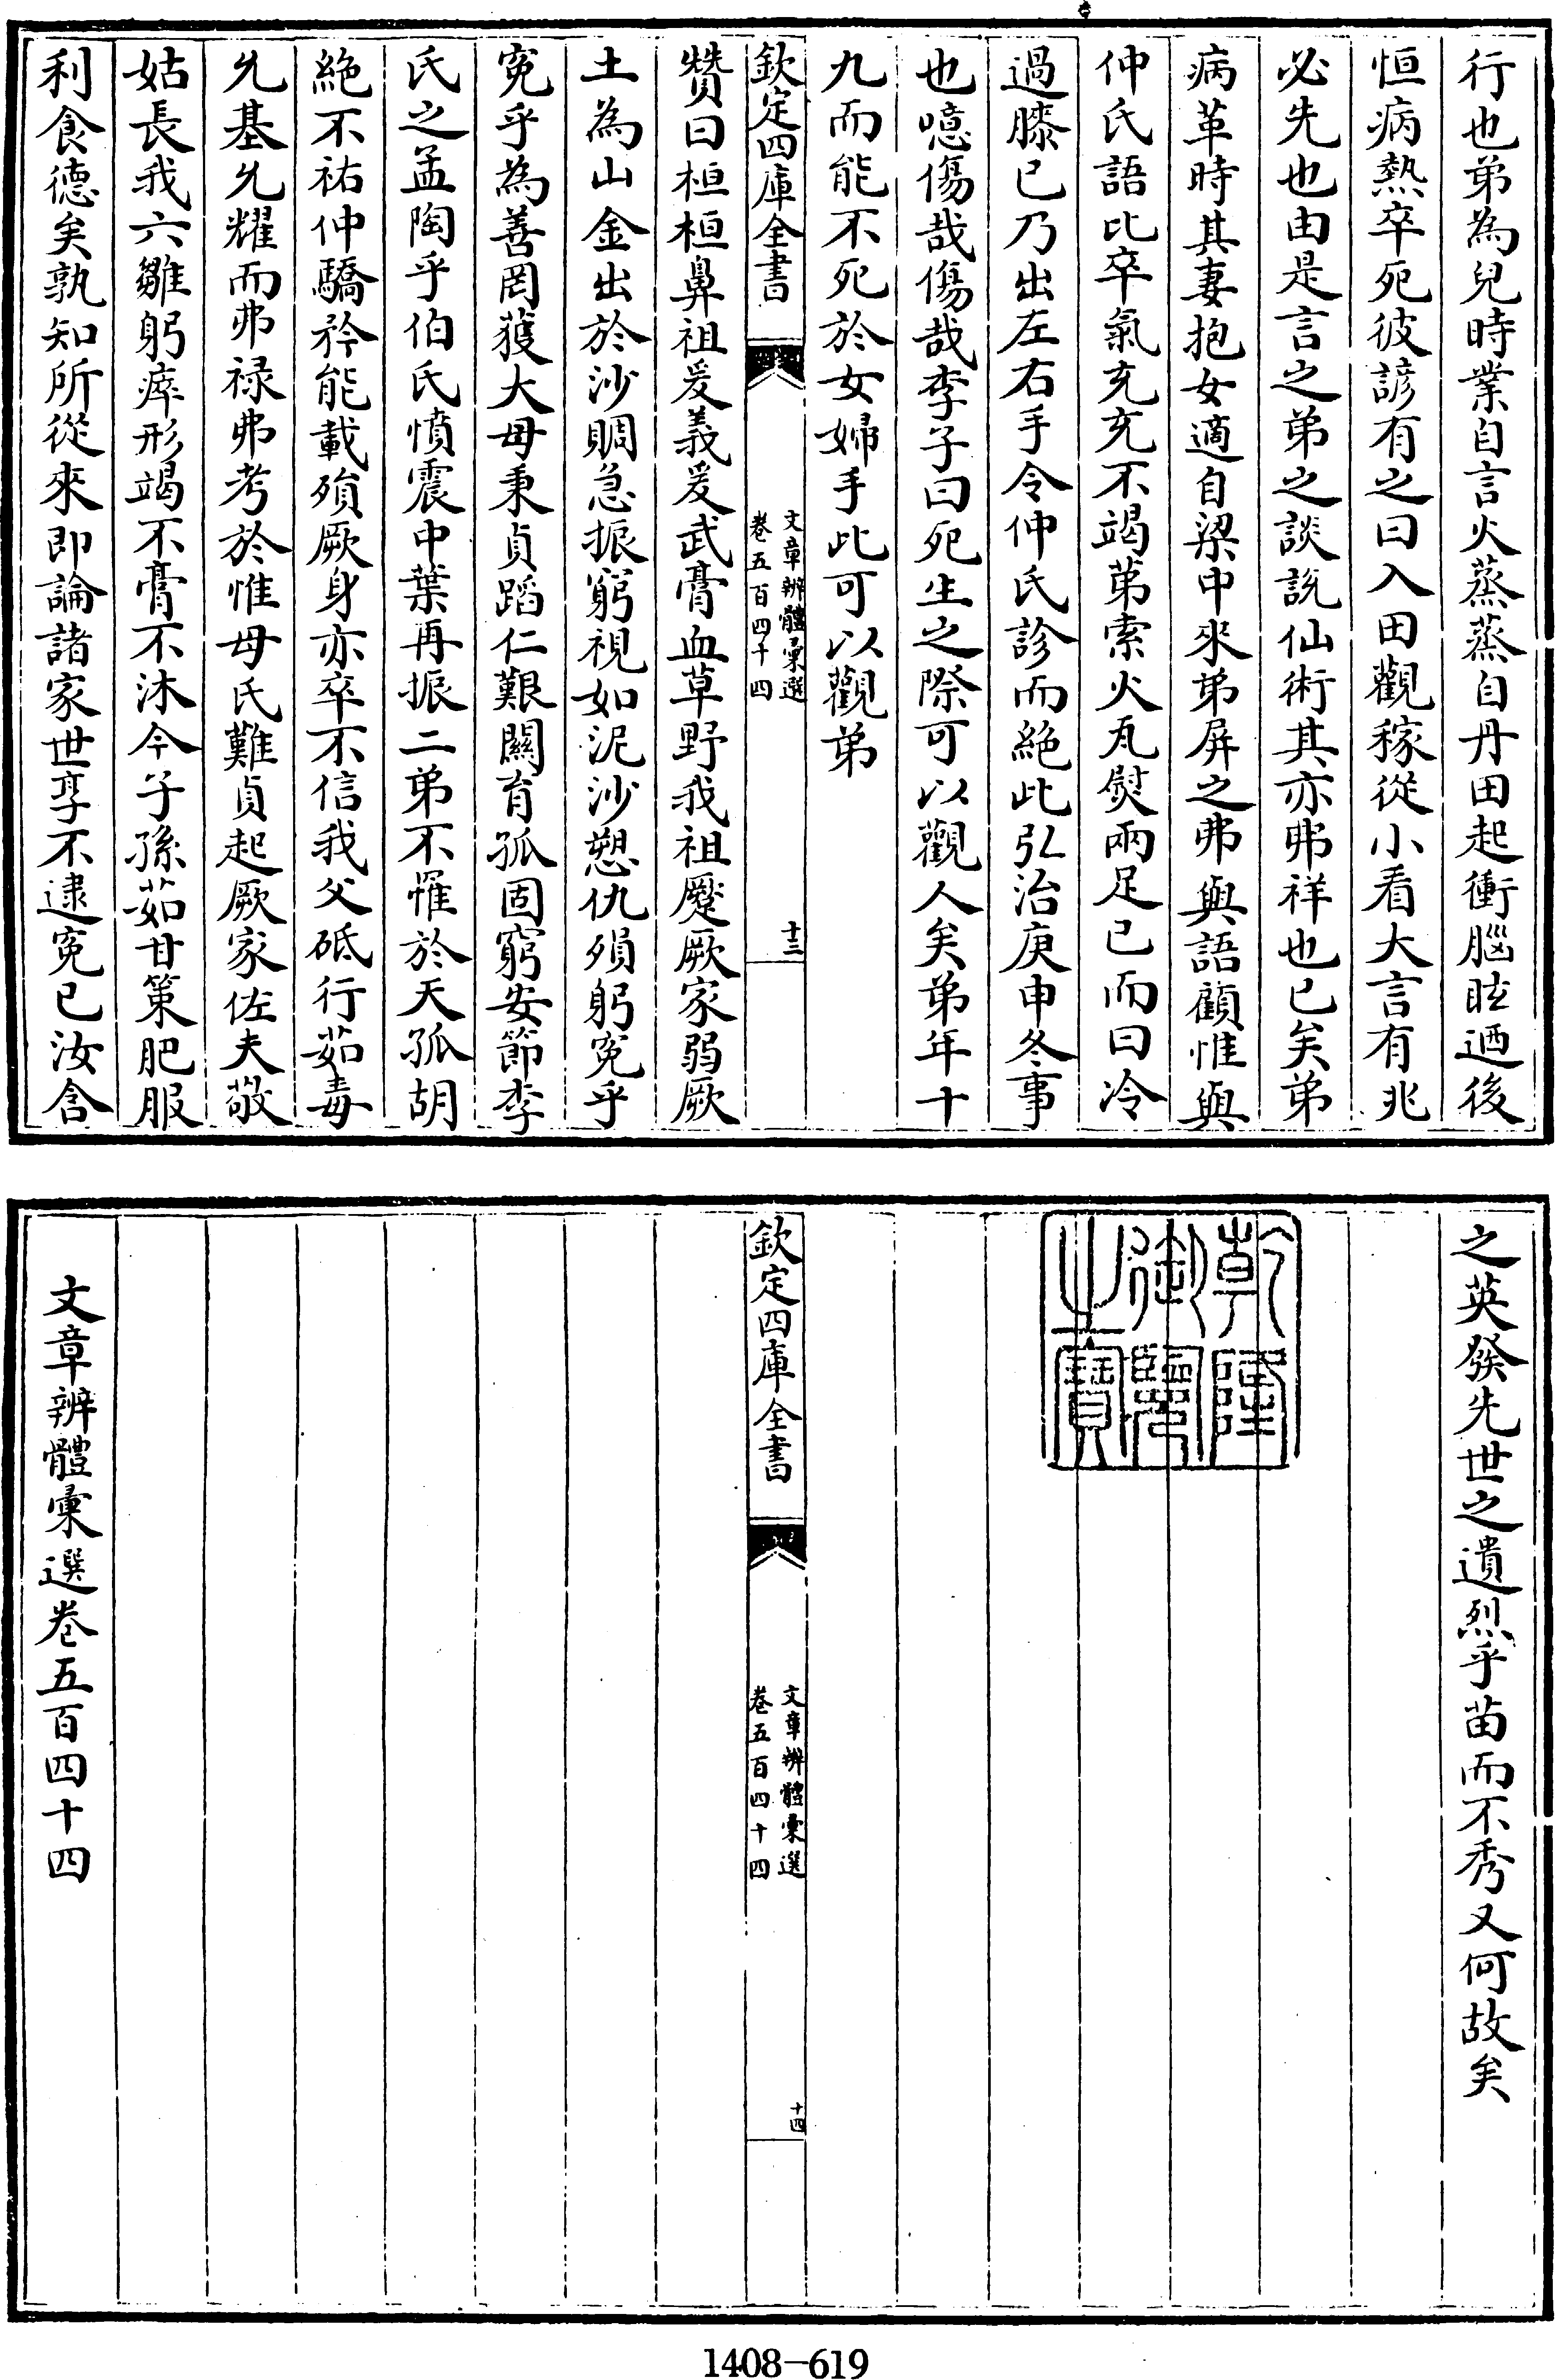 行也弟為兒時業自言火蒸蒸自丹田起衝腦眩迺後
恒病熱卒死彼諺有之曰入田觀稼從小看大言有兆
必先也由是言之弟之談說仙術其亦弗祥也已矣弟
病革時其妻抱女適自梁中來弟屏之弗與語顧惟與
仲氏語比卒氣充充不竭苐索火瓦熨兩足已而曰冷
過膝已乃出左右手令仲氏診而絶此弘治庚申冬事
也噫傷哉傷哉李子曰死生之際可以觀人矣弟年十
九而能不死於女婦手此可以觀弟
欽定四庫全書
文章辨體彚選
卷五百四十四
十三
贊曰桓桓鼻祖爰義爰武膏血草野我祖蹷厥家弱厥
土為山金出於沙賙急振窮視如泥沙愬仇殞躬寃乎
寃乎為善罔獲大母秉貞蹈仁艱關育孤固窮安節李
氏之孟陶乎伯氏憤震中葉再振二弟不罹於天孤胡
絶不祐仲驕矜能載殞厥身亦卒不信我父砥行茹毒
允基允耀而弗禄弗考於惟母氏難貞起厥家佐夫敬
姑長我六雛躬瘁形竭不膏不沐今子孫茹甘策肥服
利食德矣孰知所從來即論諸家世享不逮寃已汝含
之英發先世之遺烈乎苗而不秀又何故矣
乾隆
御覽
之寶
欽定四庫全書
文章辨體彚選
卷五百四十四
十四
文章辨體彚選卷五百四十四
1408-619